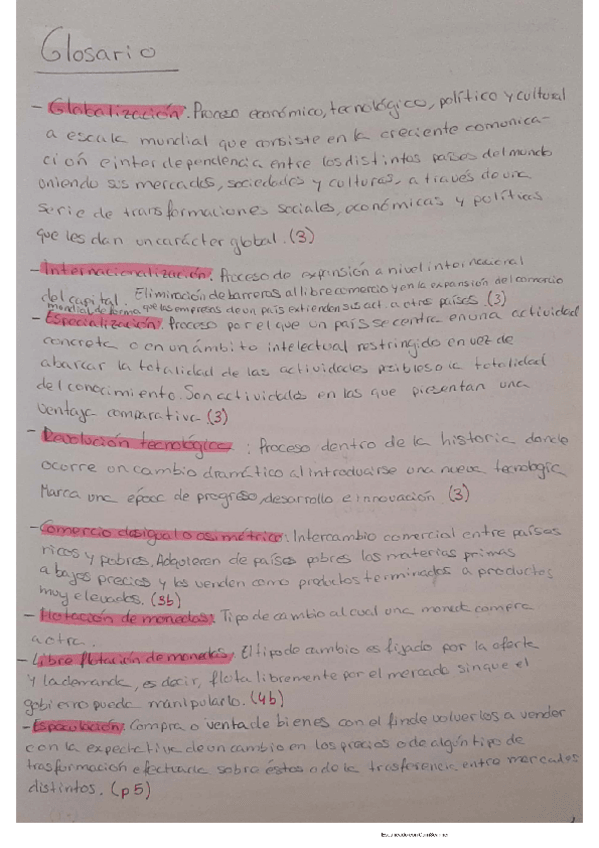 Glosario
- Globalización. Proceso económico, tecnológico, político y cultural
a escala mundial que consiste en la creciente comunica-
ción e interdependencia entre los distintos países del mundo
uniendo sus mercados, sociedades y culturas, a través de una
serie de transformaciones sociales, económicas y políticas
que les dan un carácter global. (3)
- Internacionalización. Proceso de expansión a nivel internacional
del capital. Eliminación de barreras al libre comercio y en la expansión del comercio
mundial de forma que las empresas de un país extienden sus act. a otros países. (3)
- Especialización. Proceso por el que un país se centra en una actividad
concreta o en un ámbito intelectual restringido en vez de
abarcar la totalidad de las actividades posibles o la totalidad
del conocimiento. Son actividades en las que presentan una
ventaja comparativa. (3)
- Revolución tecnológica: Proceso dentro de la historia donde
ocurre un cambio dramático al introducirse una nueva tecnología
Marca una época de progreso, desarrollo e innovación. (3)
- Comercio desigual o asimétrico: Intercambio comercial entre países
ricos y pobres. Adquieren de países pobres las materias primas
a bajos precios y los venden como productos terminados a productos
muy elevados. (3b)
- Flotación de monedas: Tipo de cambio al cual una moneda compra
a otra.
- Libre flotación de monedas. El tipo de cambio es fijado por la oferta
y la demanda, es decir, flota libremente por el mercado sin que el
gobierno pueda manipularlo. (4b)
- Especulación. Compra o venta de bienes con el fin de volverlos a vender
con la expectativa de un cambio en los precios o de algún tipo de
trasformación efectuarla sobre éstos o de la trasferencia entre mercados
distintos. (p5)
Escaneado con CamScanner